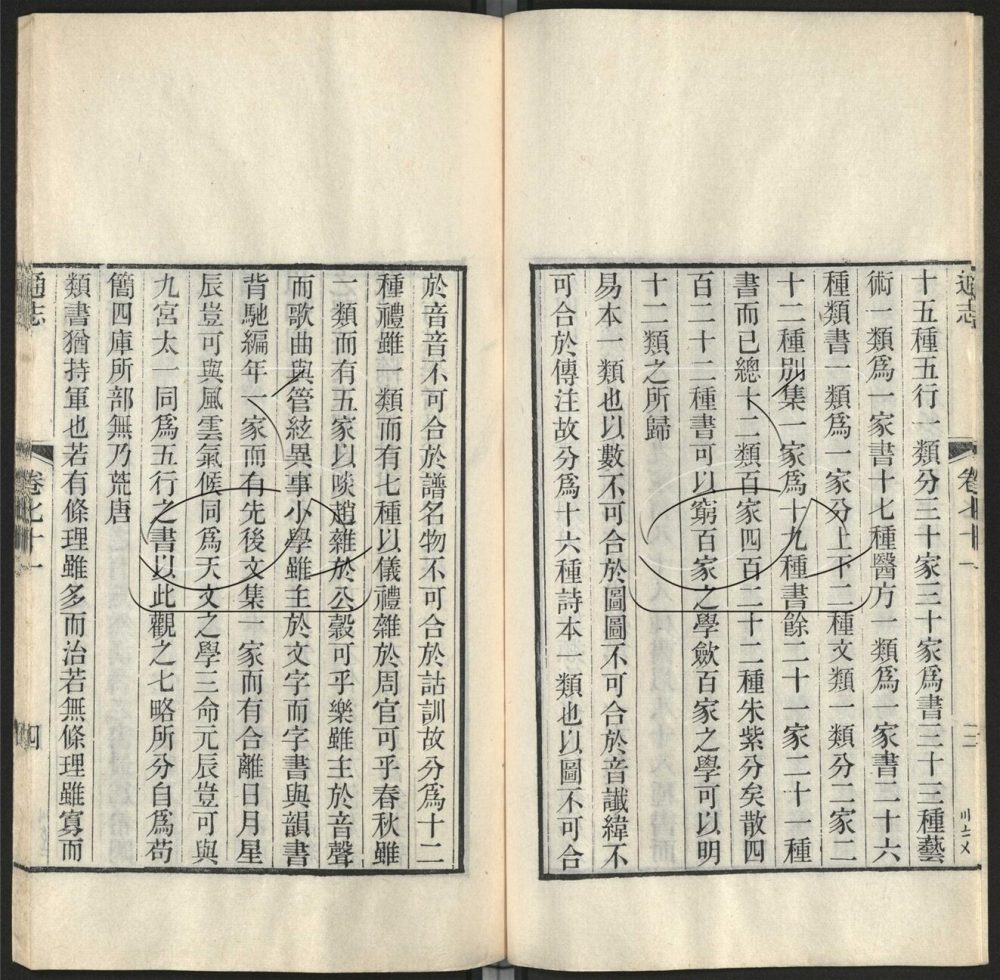 通志
卷七十一
十五種五行一類分三十家三十家爲書三十三種藝
術一類爲一家書十七種醫方一類爲一家書二十六
種類書一類爲一家分上下二種文類一類分二家二
十二種別集一家爲十九種書餘二十一家二十一種
書而已總十二類百家四百二十二種朱紫分矣散四
百二十二種書可以窮百家之學歛百家之學可以明
十二類之所歸
易本一類也以數不可合於圖圖不可合於音讖緯不
可合於傳注故分爲十六種詩本一類也以圖不可合
於音音不可合於譜名物不可合於詁訓故分爲十二
種禮雖一類而有七種以儀禮雜於周官可乎春秋雖
一類而有五家以啖趙雜於公穀可乎樂雖主於音聲
而歌曲與管絃異事小學雖主於文字而字書與韻書
背馳編年一家而有先後文集一家而有合離日月星
辰豈可與風雲氣候同爲天文之學三命元辰豈可與
九宮太一同爲五行之書以此觀之七略所分自爲苟
簡四庫所部無乃荒唐
類書猶持軍也若有條理雖多而治若無條理雖寡而
通志
卷七十一
四